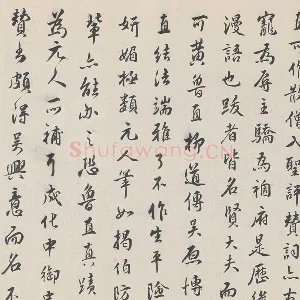 且可作散僧入聖評贊詞
寵為辱主驕為禍府是歷
漫語也跋者皆名賢大夫而
可黃魯直
道傳吳原博
直結法端雅了不作生平險
妍媚極類元人筆如揭伯防
輩亦能亦之恐魯直真蹟
為元人所補可成化中御
贊書頗深吳興意而名不
Shufawang.CN